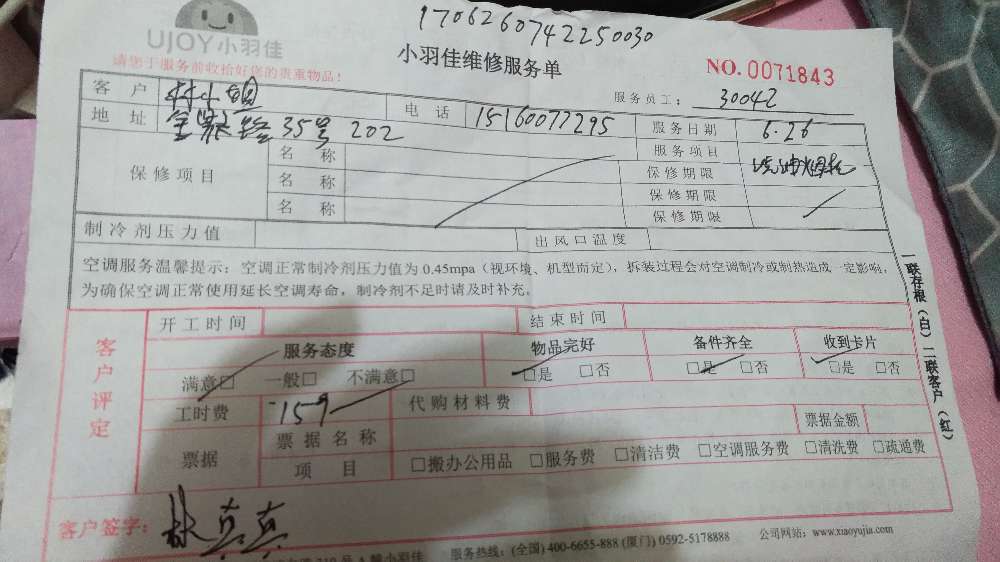 1706260742250030
UJOY小羽佳
小羽佳维修服务单
NO.0071843
请您于服务前收拾好您的贵重物品！
服务员工： 30042
客户 林小姐 电话 15160077295 服务日期 6.26
地址 35号 202 服务项目
保修项目 名称 保修期限
名称 保修期限
名称 保修期限
制冷剂压力值 出风口温度
空调服务温馨提示：空调正常制冷剂压力值为0.45mpa（视环境、机型而定），拆装过程会对空调制冷或制热造成一定影响，
为确保空调正常使用延长空调寿命，制冷剂不足时请及时补充。
一联存根（白）二联客户（红）
客户评定
开工时间 结束时间
服务态度 物品完好 备件齐全 收到卡片
满意□ 一般□ 不满意□ □是 □否 □是 □否 □是 □否
工时费 159 代购材料费
票据 票据名称 票据金额
项目 □搬办公用品 □服务费 □清洁费 □空调服务费 □清洗费 □疏通费
客户签字： 林真真
小羽佳 服务热线：(全国) 400-6655-888 (厦门) 0592-5178888 公司网站：www.xiaoyujia.com